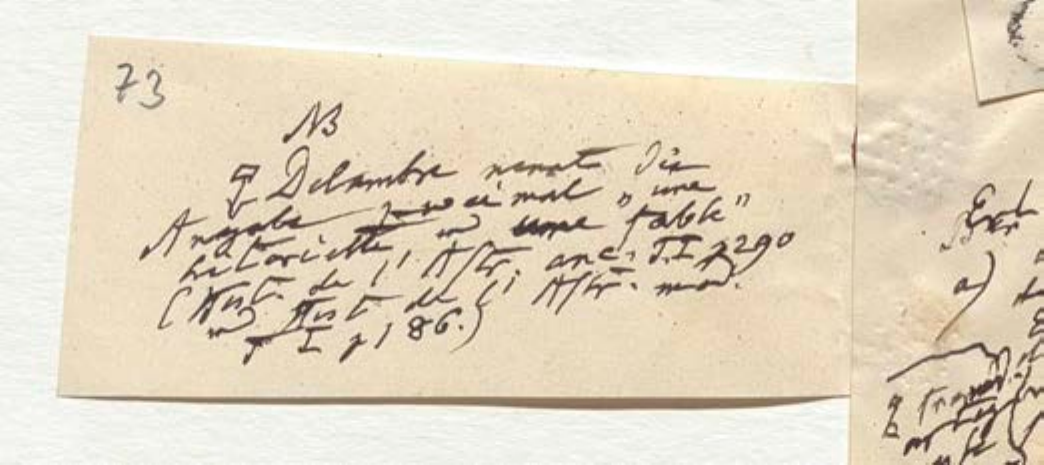 73
NB
Delambre nennt die
Angabe zweimal "une
historiette" und une fable"
(Hist. de l'Astr. anc. T.I p 290
und Hist de l' Astr. mod.
T I p 186.)
a)